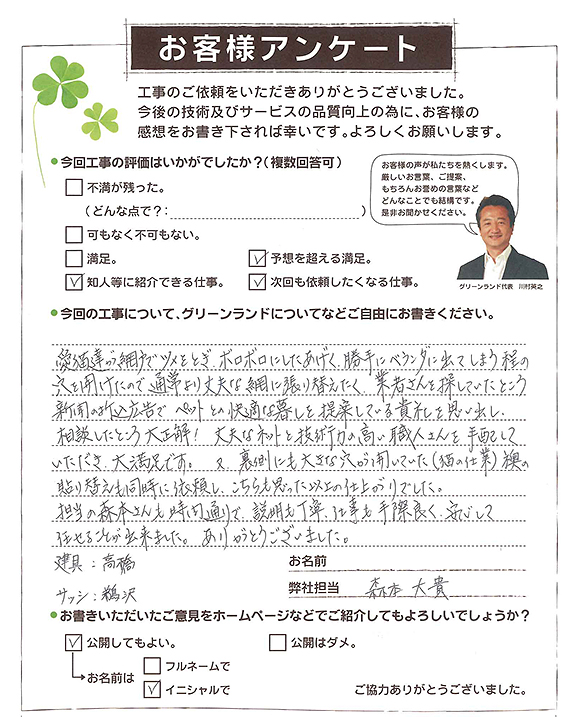 お客様アンケート
工事のご依頼をいただきありがとうございました。
今後の技術及びサービスの品質向上の為に、お客様の
感想をお書き下されば幸いです。よろしくお願いします。
●今回工事の評価はいかがでしたか？（複数回答可）
不満が残った。
（どんな点で？：　）
可もなく不可もない。
満足。
✓予想を超える満足。
✓知人等に紹介できる仕事。
✓次回も依頼したくなる仕事。
お客様の声が私たちを熱くします。
厳しいお言葉、ご提案、
もちろんお誉めの言葉など
どんなことでも結構です。
是非お聞かせください。
グリーンランド代表　川村英之
●今回の工事について、グリーンランドについてなどご自由にお書きください。
愛猫達が網戸でツメをとぎ、ボロボロにしたあげく、勝手にベランダに出てしまう程の
穴を開けたので、通常より丈夫な網に張り替えたく、業者さんを探していたところ
新聞の折込広告で ペットとの快適な暮しを提案している貴社を思い出し、
相談したところ 大正解！ 丈夫なネットと技術力の高い職人さんを手配して
いただき、大満足です。 又、裏側にも大きな穴が開いていた（猫の仕業）襖の
貼り替えも同時に依頼し、こちらも思った以上の仕上がりでした。
担当の森本さんも時間通りで、説明も丁寧、仕事も手際良く、安心して
任せることが出来ました。 ありがとうございました。
建具：高橋
お名前
サッシ：鵜沢
弊社担当　森本 大貴
●お書きいただいたご意見をホームページなどでご紹介してもよろしいでしょうか？
✓公開してもよい。
公開はダメ。
お名前は
フルネームで
✓イニシャルで
ご協力ありがとうございました。